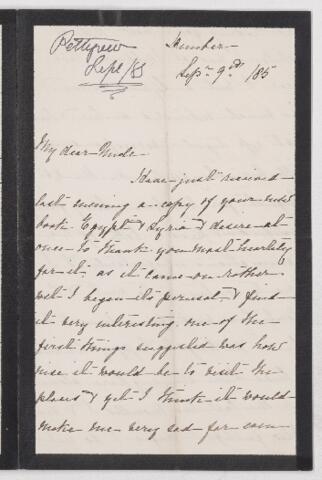 Pettigrew
Sept/85
Humber
Sep. 9th /85
My dear Uncle
I have just received
last evening a copy of your new
book Egypt & Syria & desire at
once to thank you most heartily
for it, as it came on rather
wet I began its perusal, & find
it very interesting, one of the
first things suggested was how
nice it would be to visit the
places & yet I think it would
make one very sad for con